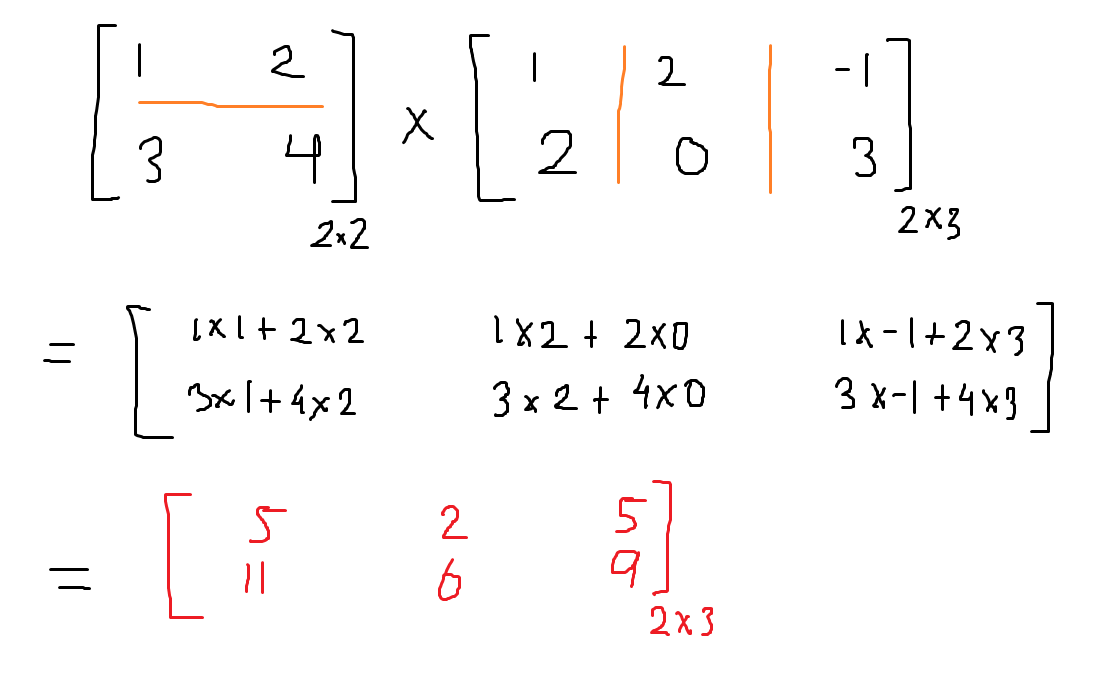 [ 1 2 ] × [ 1 | 2 | -1 ]
[ 3 4 ] [ 2 | 0 | 3 ]
2×2 2×3
= [ 1×1+2×2 1×2+2×0 1×-1+2×3 ]
[ 3×1+4×2 3×2+4×0 3×-1+4×3 ]
= [ 5 2 5 ]
[ 11 6 9 ]
2×3